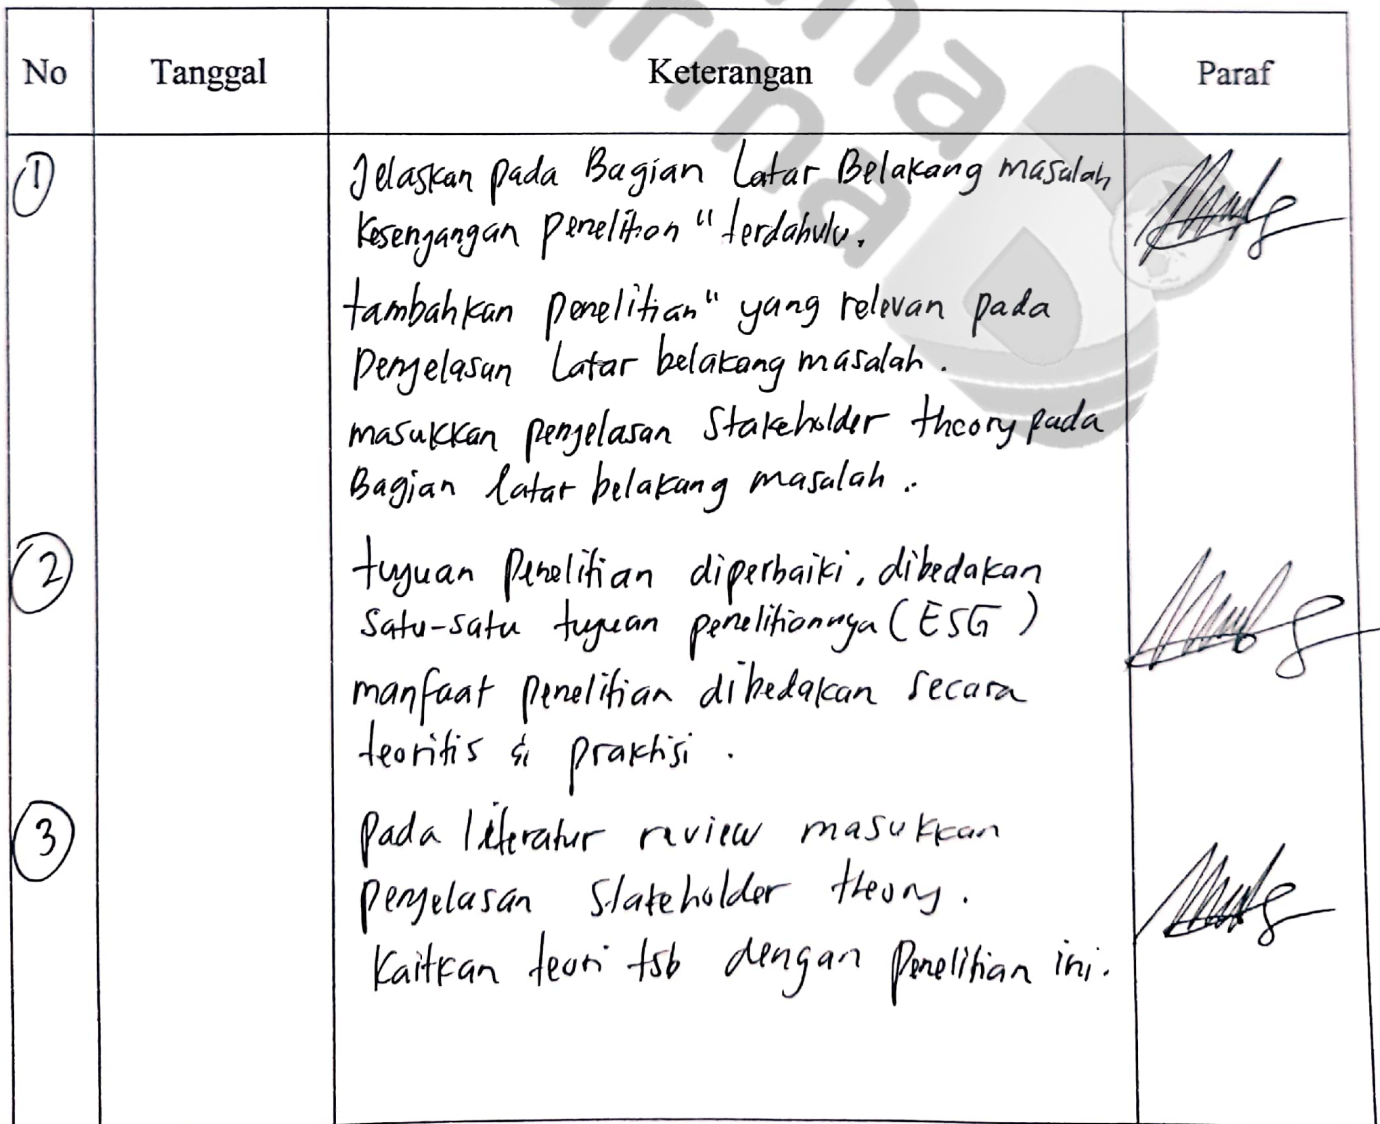 No Tanggal Keterangan Paraf
1 Jelaskan pada Bagian Latar Belakang masalah
Kesenjangan penelition " terdahulu.
tambahkan penelitian" yang relevan pada
Penjelasan Latar belakang masalah.
masukkan penjelasan Stakeholder theory pada
Bagian latar belakang masalah.
2 tujuan Penelitian diperbaiki, dibedakan
Satu-satu tujuan penelitionnya (ESG)
manfaat penelitian dibedakan secara
teoritis & praktisi.
3 Pada literatur review masukkan
penjelasan Stakeholder theory.
Kaitkan teori tsb dengan Penelitian ini.